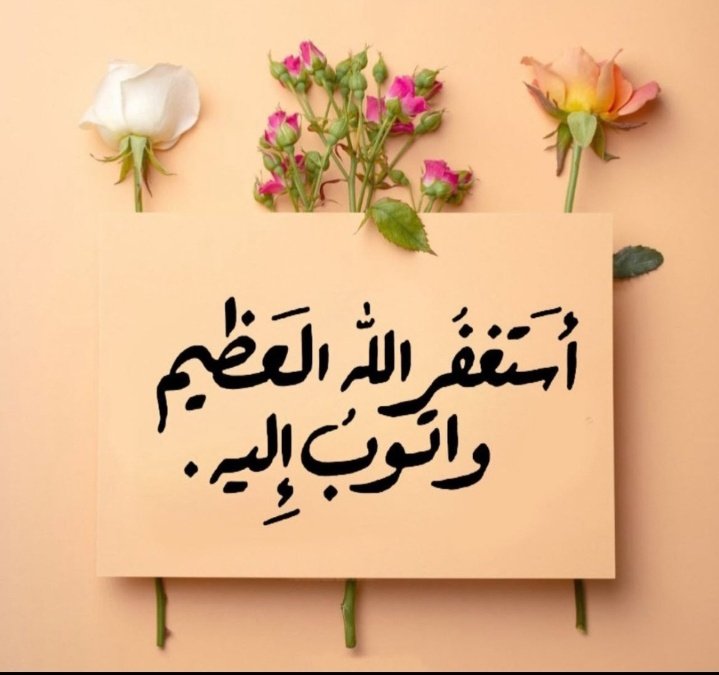 أَستَغفُر الله العَظيم
واتوبُ إِليه.